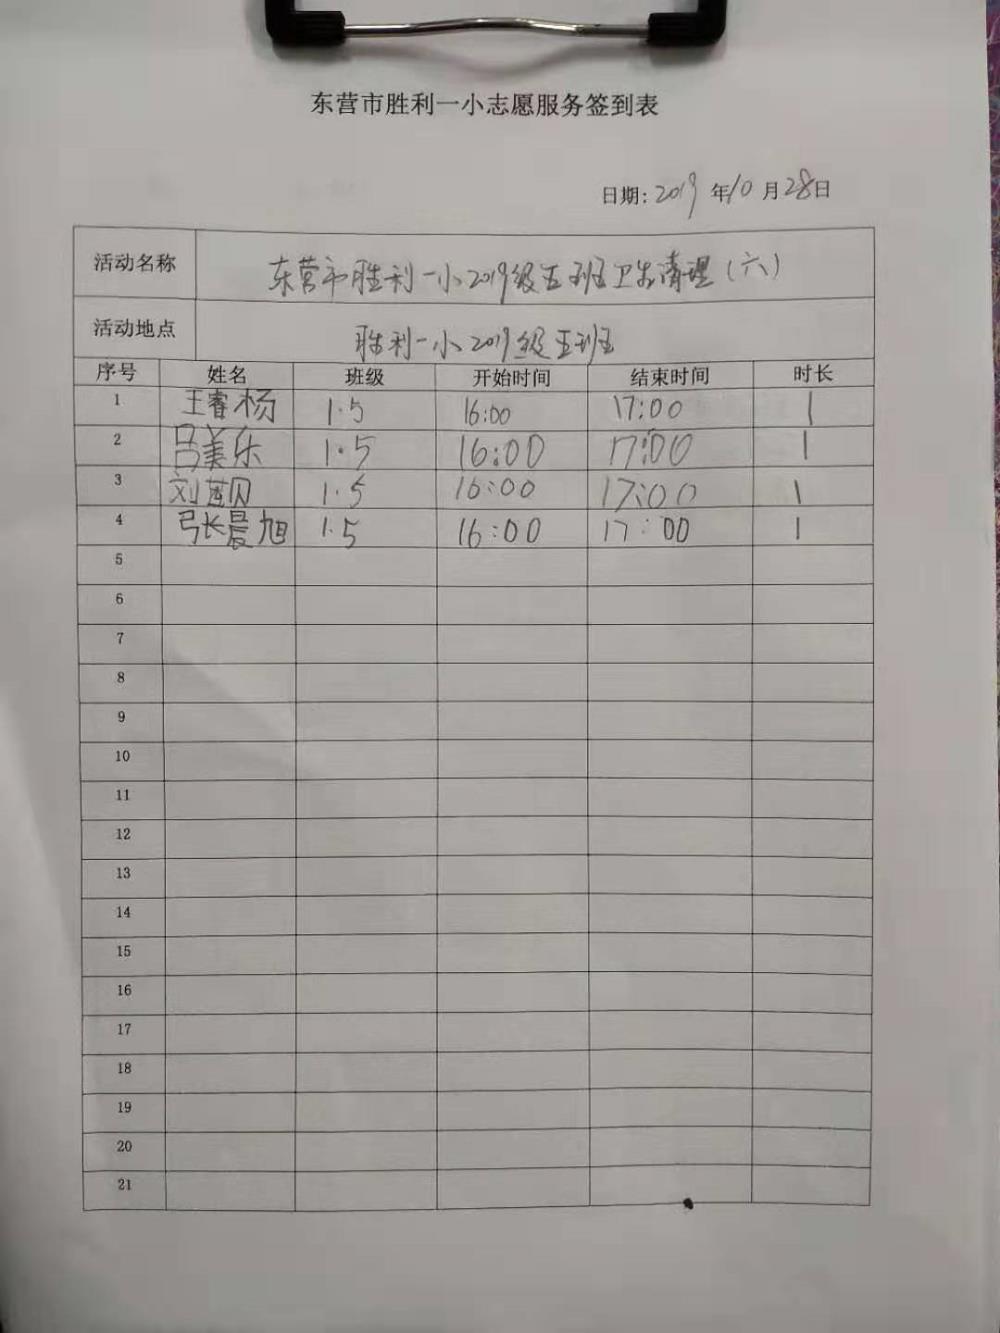 东营市胜利一小志愿服务签到表
日期: 2019 年 10 月 28 日
活动名称 东营市胜利一小2019级五班卫生清理(六)
活动地点 胜利一小2019级五班
序号 姓名 班级 开始时间 结束时间 时长
1 王睿杨 1.5 16:00 17:00 1
2 吕美乐 1.5 16:00 17:00 1
3 刘 1.5 16:00 17:00 1
4 张晨旭 1.5 16:00 17:00 1
5
6
7
8
9
10
11
12
13
14
15
16
17
18
19
20
21